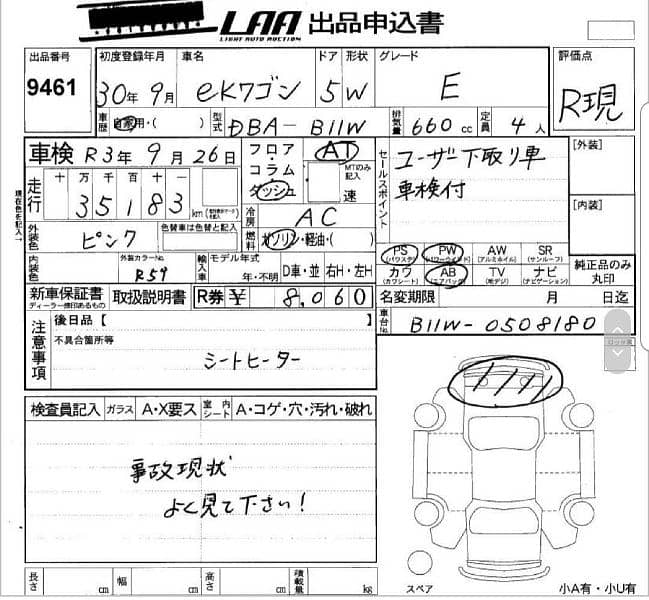 LAA 出品申込書
LIGHT AUTO AUCTION
出品番号 初度登録年月 車名 ドア 形状 グレード 評価点
9461 30年 9月 eKワゴン 5 W E R現
車歴 自家用・( ) 型式 DBA-B11W 排気量 660 cc 定員 4 人
車検 R3年 9月 26日 フロア・コラム・ダッシュ AT MTのみ記入 速
セールスポイント ユーザー下取り車
車検付
[外装]
[内装]
現在色を記入
走行 十 万 千 百 十 一
3 5 1 8 3 km
冷房 AC
外装色 ピンク 色替車は色替と記入 燃料 ガソリン・軽油・( )
PS (パワステ) PW (パワーウインド) AW (アルミホイル) SR (サンルーフ)
カワ (カワシート) AB (エアバッグ) TV (地デジ) ナビ (ナビゲーション)
純正品のみ丸印
内装色 外装カラーNo. R59 輸入車 モデル年式 年・不明 D車・並 右H・左H
新車保証書 ディーラー捺印あるもの 取扱説明書 R券 ¥ 8,060 名変期限 月 日迄
車台No. B11W-0508180
注意事項 後日品【 】
不具合箇所等
シートヒーター
ロック解
検査員記入 ガラス A・X要ス 室内シート A・コゲ・穴・汚れ・破れ
事故現状
よく見て下さい!
長さ cm 幅 cm 高さ cm 積載量 kg
スペア 小A有・小U有